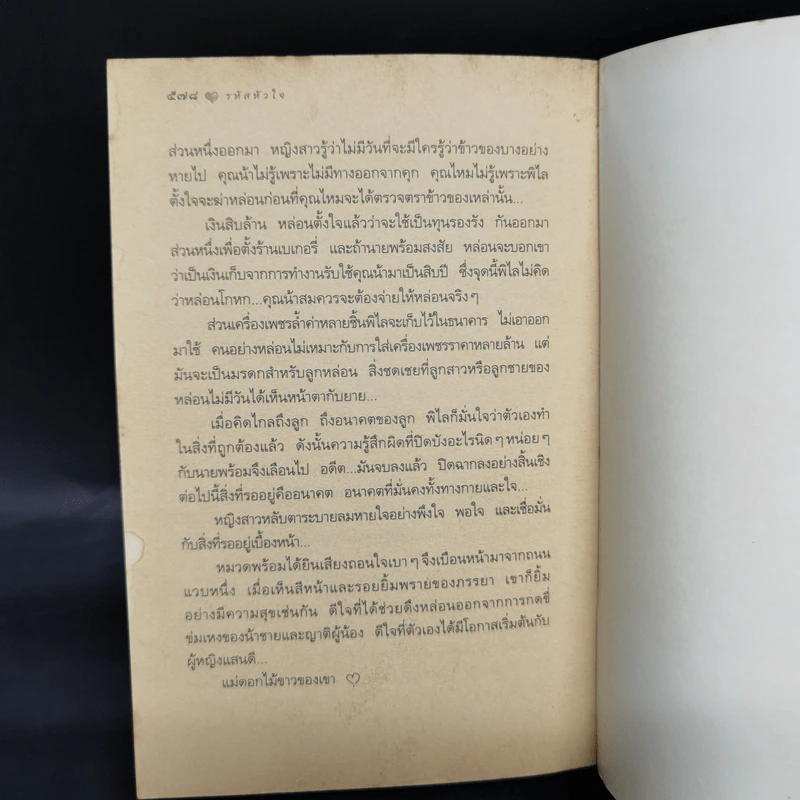 ๕๗๘ รหัสหัวใจ
ส่วนหนึ่งออกมา หญิงสาวรู้ว่าไม่มีวันที่จะมีใครรู้ว่าข้าวของบางอย่าง
หายไป คุณน้าไม่รู้เพราะไม่มีทางออกจากคุก คุณไหมไม่รู้เพราะพิไล
ตั้งใจจะฆ่าหล่อนก่อนที่คุณไหมจะได้ตรวจตราข้าวของเหล่านั้น...
เงินสิบล้าน หล่อนตั้งใจแล้วว่าจะใช้เป็นทุนรองรัง กันออกมา
ส่วนหนึ่งเพื่อตั้งร้านเบเกอรี่ และถ้านายพร้อมสงสัย หล่อนจะบอกเขา
ว่าเป็นเงินเก็บจากการทำงานรับใช้คุณน้ามาเป็นสิบปี ซึ่งจุดนี้พิไลไม่คิด
ว่าหล่อนโกหก...คุณน้าสมควรจะต้องจ่ายให้หล่อนจริงๆ
ส่วนเครื่องเพชรล้ำค่าหลายชิ้นพิไลจะเก็บไว้ในธนาคาร ไม่เอาออก
มาใช้ คนอย่างหล่อนไม่เหมาะกับการใส่เครื่องเพชรราคาหลายล้าน แต่
มันจะเป็นมรดกสำหรับลูกหล่อน สิ่งชดเชยที่ลูกสาวหรือลูกชายของ
หล่อนไม่มีวันได้เห็นหน้าตากับยาย...
เมื่อคิดไกลถึงลูก ถึงอนาคตของลูก พิไลก็มั่นใจว่าตัวเองทำ
ในสิ่งที่ถูกต้องแล้ว ดังนั้นความรู้สึกผิดที่ปิดบังอะไรนิดๆ หน่อยๆ
กับนายพร้อมจึงเลือนไป อดีต...มันจบลงแล้ว ปิดฉากลงอย่างสิ้นเชิง
ต่อไปนี้สิ่งที่รออยู่คืออนาคต อนาคตที่มั่นคงทั้งทางกายและใจ...
หญิงสาวหลับตาระบายลมหายใจอย่างพึงใจ พอใจ และเชื่อมั่น
กับสิ่งที่รออยู่เบื้องหน้า...
หมวดพร้อมได้ยินเสียงถอนใจเบาๆ จึงเบือนหน้ามาจากถนน
แวบหนึ่ง เมื่อเห็นสีหน้าและรอยยิ้มพรายของภรรยา เขาก็ยิ้ม
อย่างมีความสุขเช่นกัน ดีใจที่ได้ช่วยดึงหล่อนออกจากการกดขี่
ข่มเหงของน้าชายและญาติผู้น้อง ดีใจที่ตัวเองได้มีโอกาสเริ่มต้นกับ
ผู้หญิงแสนดี...
แม่ดอกไม้ขาวของเขา